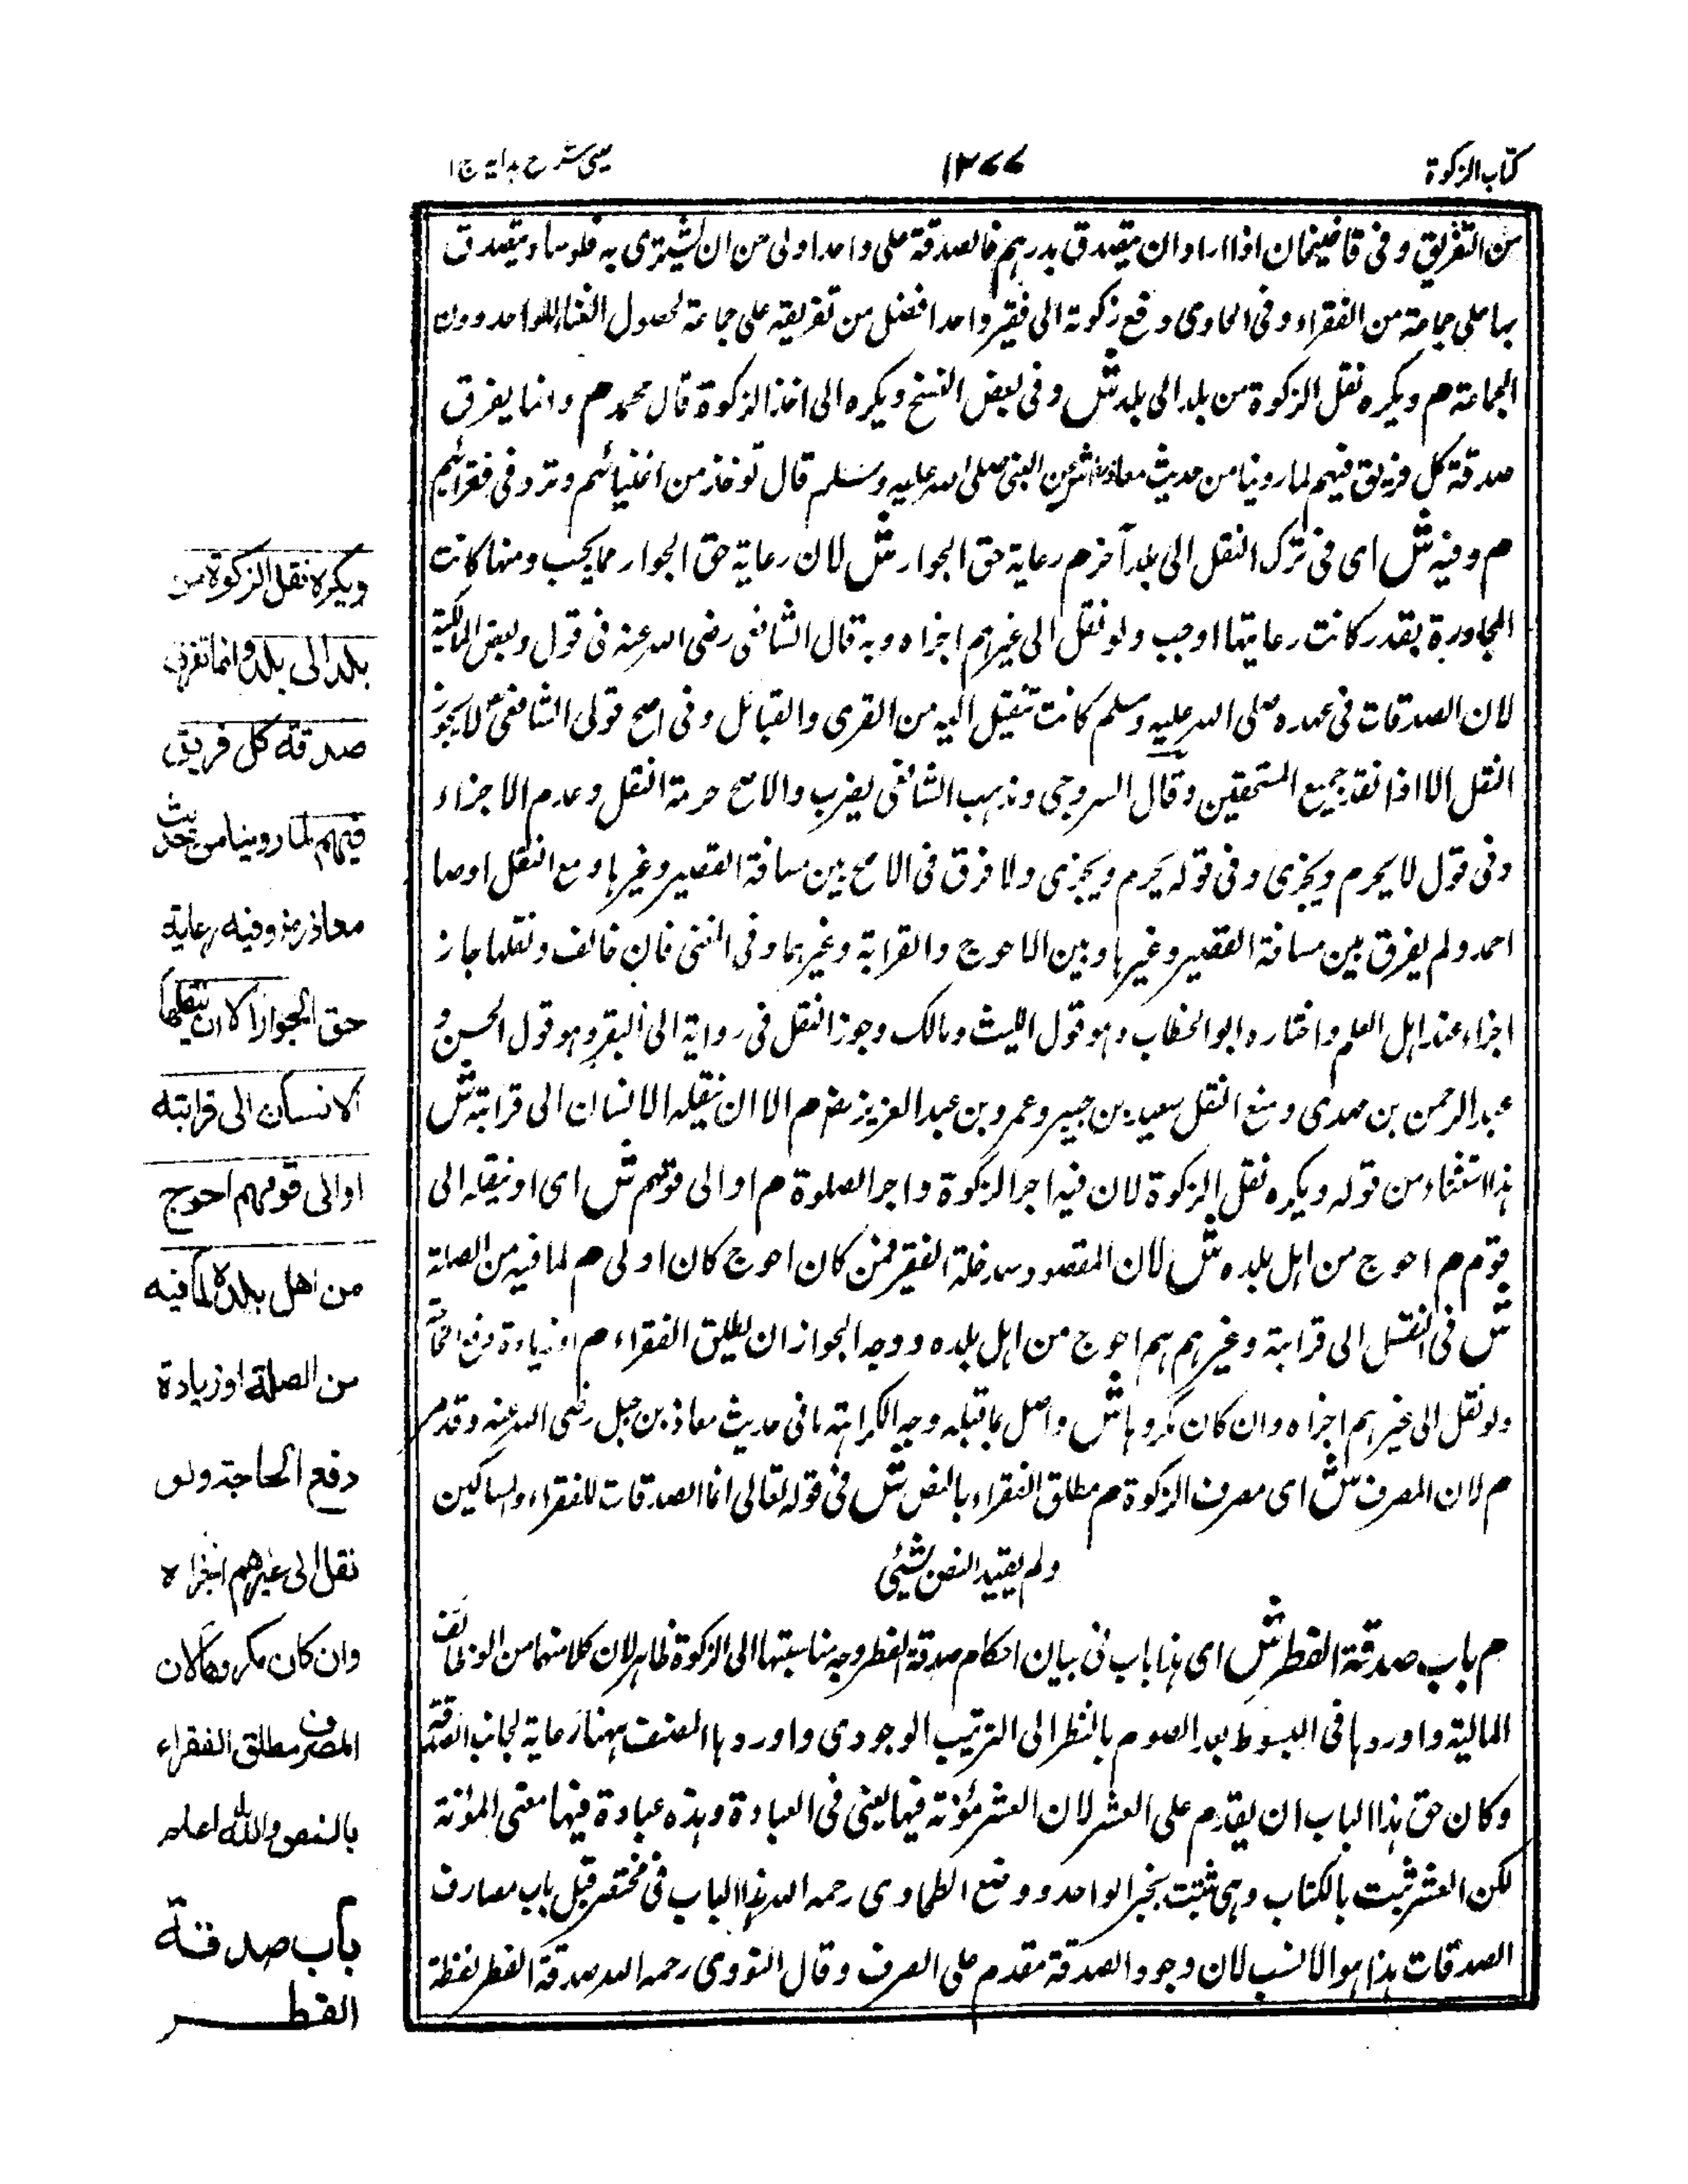 كتاب الزكوة
١٣٧٧
عینی شرح ہدایہ ج ١
من التفريق وفى قاضيخان اذا اراد ان يتصدق بدرهم فالصدقة على واحد اولى من ان يشترى به فلوسا ويتصدق
بها على جماعة من الفقراء وفى الحاوى دفع زكوته الى فقير واحد افضل من تفريقه على جماعة لحصول الغناء للواحد دون
الجماعة م ويكره نقل الزكوة من بلد الى بلد ش وفى بعض النسخ ويكره الى اخذ الزكوة قال محمد م وانما يفرق
صدقة كل فريق فيهم لما روينا من حديث معاذ ش عن النبى صلى الله عليه وسلم قال توخذ من اغنيائهم وترد فى فقرائهم
م وفيه ش اى فى ترك النقل الى بلد آخر م رعاية حق الجوار ش لان رعاية حق الجوار مما يجب ومنها كانت
المجاورة بقدر كانت رعايتها اوجب ولو نقل الى غيرهم اجزاه وبه قال الشافعى رضى الله عنه فى قول وبعض المالكية
لان الصدقات فى عهده صلى الله عليه وسلم كانت تنقل اليه من القرى والقبائل وفى اصح قولى الشافعى لا يجوز
النقل الا اذا فقد جميع المستحقين وقال السروجى ومذهب الشافعى يضرب والاصح حرمة النقل وعدم الاجزاء
وفى قول لا يحرم ويجزى وفى قوله يحرم ويجزى ولا فرق فى الاصح بين مسافة القصير وغيرها ومع النقل اوصا
احمد ولم يفرق بين مسافة القصير وغيرها وبين الاحوج والقرابة وغيرهما وفى المغنى فان خالف ونقلها جاز
اجزاء عند اهل العلم واختاره ابو الخطاب وهو قول الليث ومالك وجوز النقل فى رواية الى البقر وهو قول الحسن و
عبد الرحمن بن مهدى ومنع النقل سعيد بن جبير وعمرو بن عبد العزيز م الا ان ينقله الانسان الى قرابته ش
هذا استثناء من قوله ويكره نقل الزكوة لان فيه اجر الزكوة واجر الصلوة م او الى قوم هم ش اى او ينقله الى
قوم م احوج من اهل بلده ش لان المقصود سد خلة الفقير فمن كان احوج كان اولى م لما فيه من الصلة
ش فى النقل الى قرابة وغيرهم هم احوج من اهل بلده ووجه الجواز ان يطلق الفقراء م او زيادة دفع الحاجة
ولو نقل الى غيرهم اجزاه وان كان مكروها ش واصل بما قبله وجه الكراهة ما فى حديث معاذ بن جبل رضى الله عنه وقد مر
م لان المصرف ش اى مصرف الزكوة م مطلق الفقراء بالنص ش فى قوله تعالى انما الصدقات للفقراء والمساكين
ولم يقيد النص بشيئ
م باب صدقة الفطر ش اى هذا باب فى بيان احكام صدقة الفطر وجه مناسبتها الى الزكوة ظاهر لان كلا منهما من الوظائف
المالية واوردها فى المبسوط بعد الصوم بالنظر الى الترتيب الوجودى واوردها المصنف ههنا رعاية لجانب الصدقة
وكان حق هذا الباب ان يقدم على العشر لان العشر مؤنة فيها يعنى فى العبادة وهذه عبادة فيها معنى المؤنة
لكن العشر ثبت بالكتاب وهى ثبتت بخبر الواحد ووضع الطحاوى رحمه الله هذا الباب فى مختصر قبل باب مصارف
الصدقات هذا هو الانسب لان وجود الصدقة مقدم على الصرف وقال النووى رحمه الله صدقة الفطر لفظة
ويكره نقل الزكوة من
بلد الى بلد وانما تفرق
صدقة كل فريق
فيهم لما روينا من حديث
معاذ رض وفيه رعاية
حق الجوار الا ان ينقلها
الانسان الى قرابته
او الى قوم هم احوج
من اهل بلده لما فيه
من الصلة او زيادة
دفع الحاجة ولو
نقل الى غيرهم اجزاه
وان كان مكروها لان
المصرف مطلق الفقراء
بالنص والله اعلم
باب صدقة
الفطر